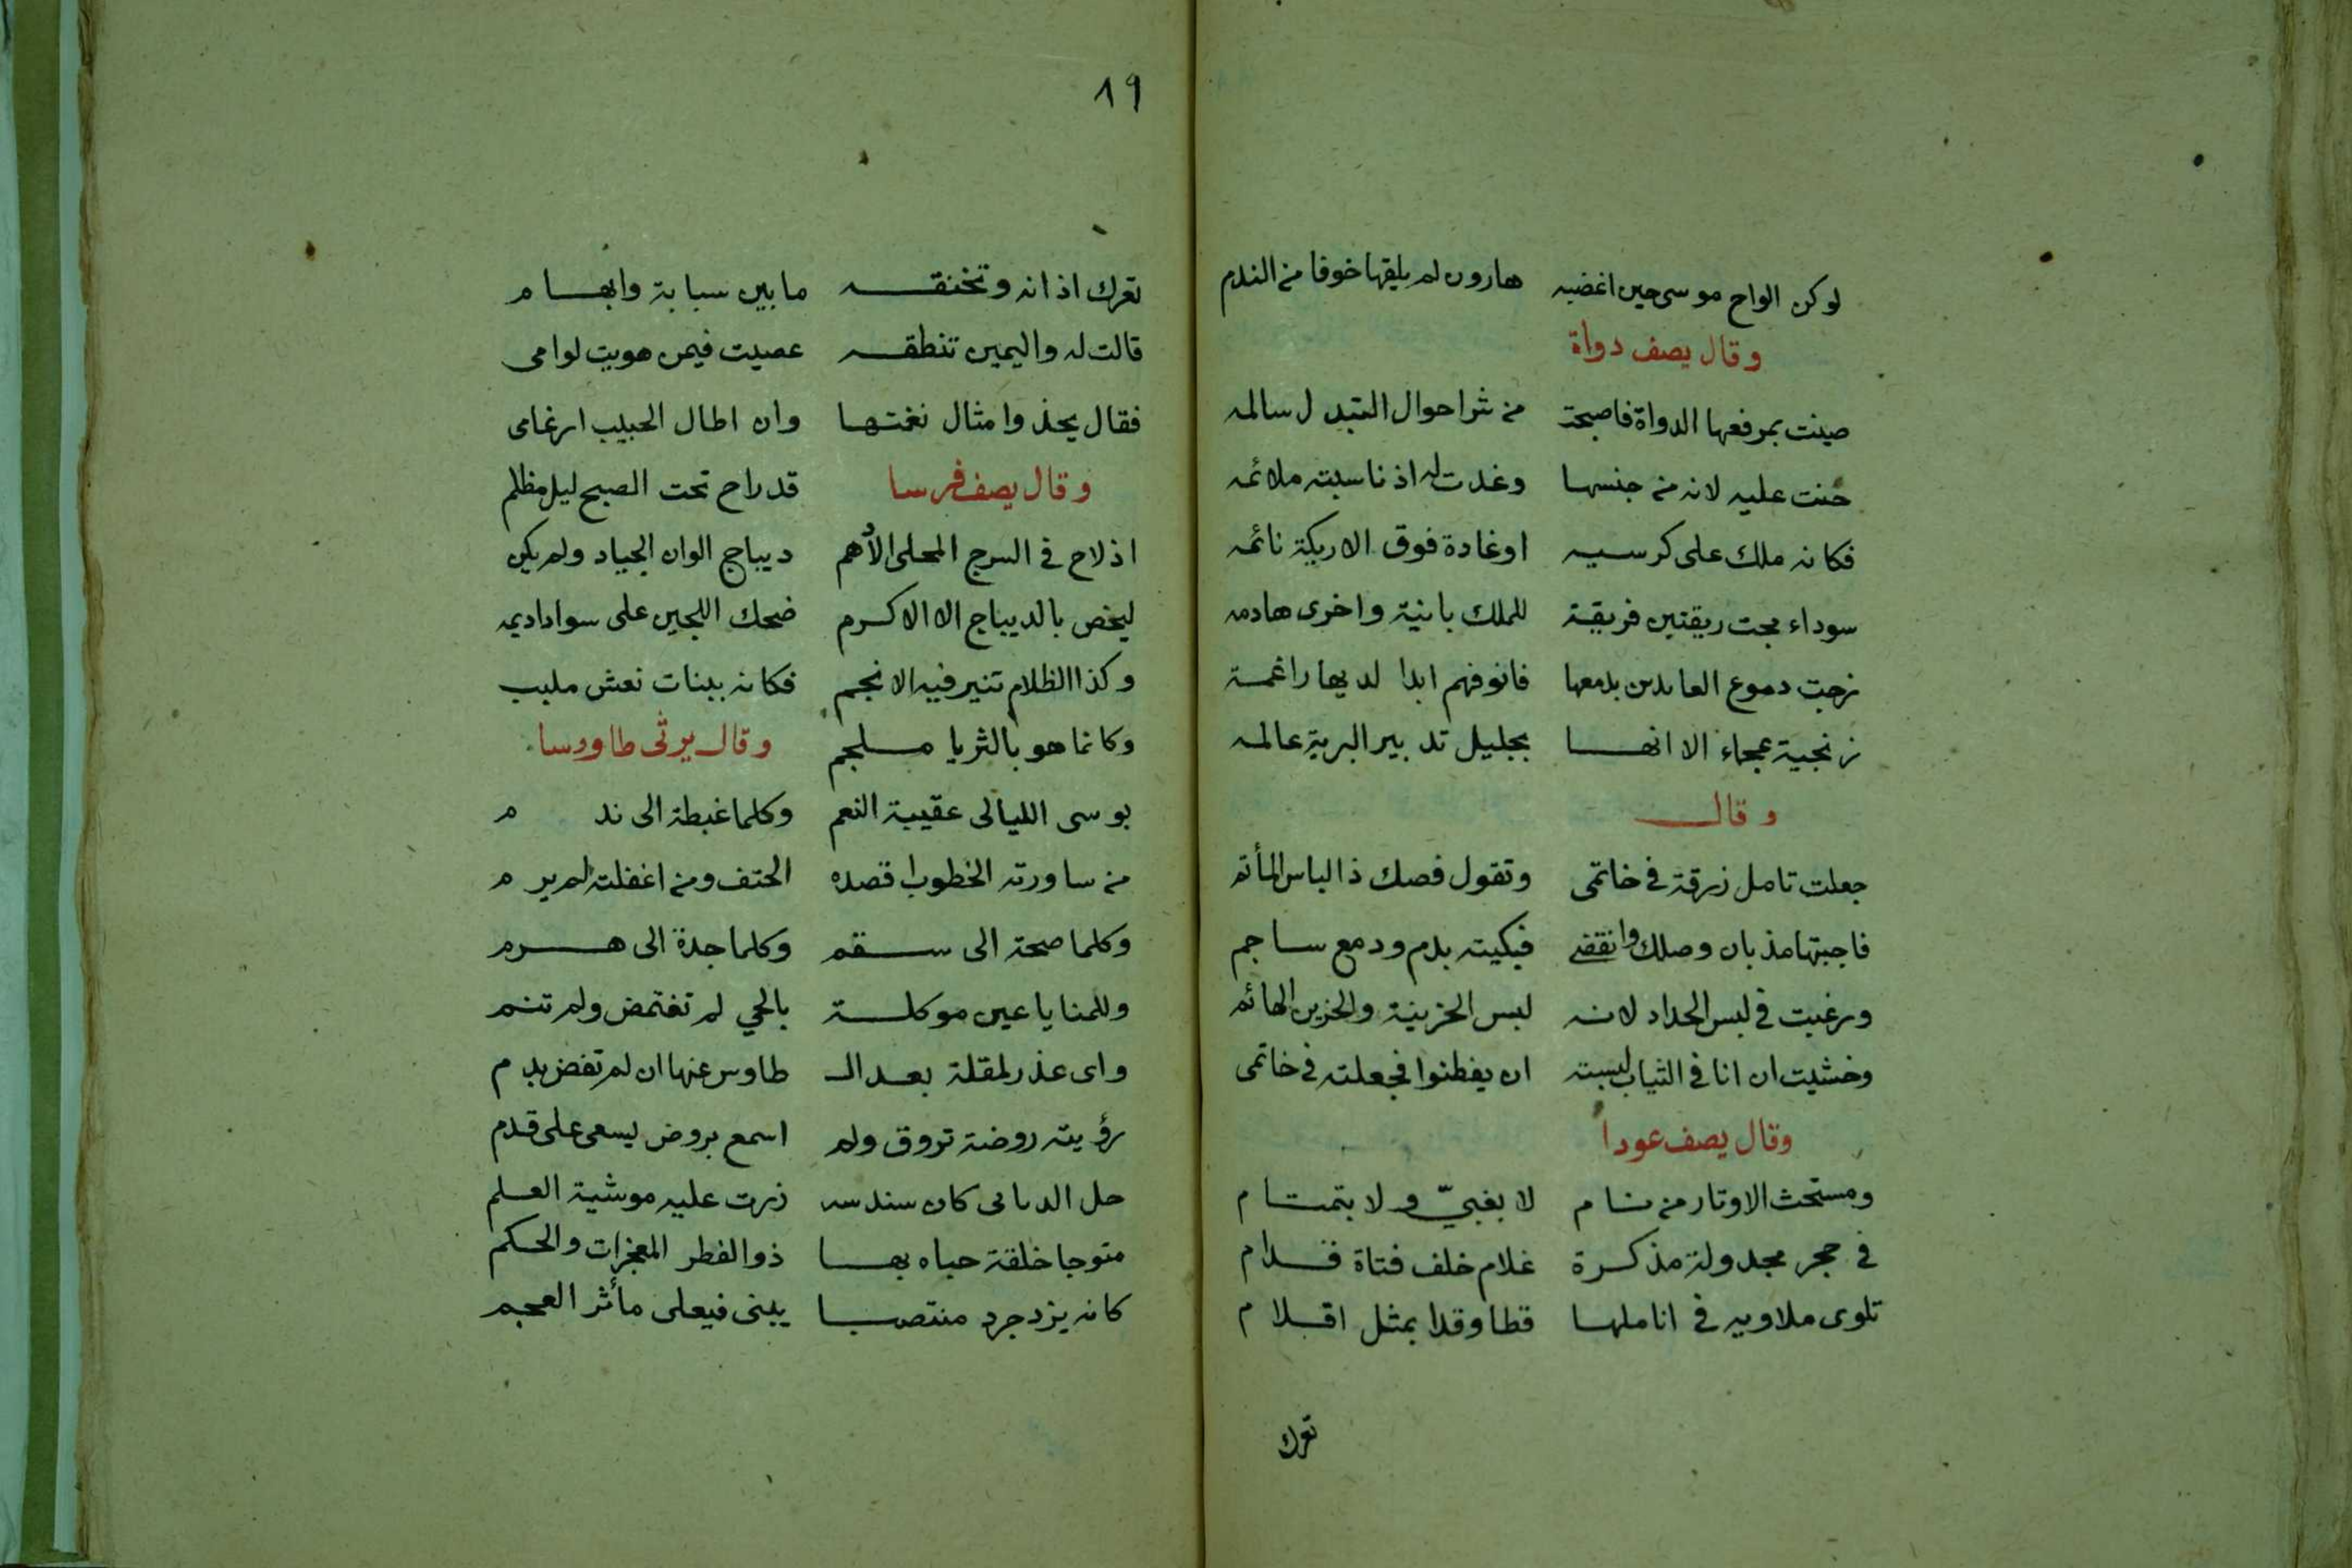 لوكن الواح موسى حين اغضبه هارون لم يلقها خوفا من الندم
وقال يصف دواة
صينت بمرفعها الدواة فاصبحت من شر احوال التبدل سالمه
حنت عليه لانه من جنسها وغدت له اذ ناسبته ملائمه
فكانه ملك على كرسيه اوغادة فوق الاريكة نائمه
سوداء مجت ريقتين فريقة للملك بانية واخرى هادمه
نزحت دموع العابدين بدمعها فانوفهم ابدا لديها راغمة
زنجية عجماء الا انها بجليل تدبير البرية عالمه
وقال
جعلت تامل زرقة في خاتمى وتقول فصك ذا لباس المأتم
فاجبتها مذ بان وصلك وانقضى فبكيته بدم ودمع ساجم
ورغبت في لبس الحداد لانه لبس الحزينة والحزين الهائم
وخشيت ان انا في الثياب لبسته ان يفطنوا فجعلته في خاتمى
وقال يصف عودا
ومستحث الاوتار من نام لا بغبيّ ولا بتمتام
في حجر مجدولة مذكرة غلام خلف فتاة قدام
تلوى ملاويه في اناملها قطا وقدا بمثل اقلام
تعرك
١٩
تعرك اذانه وتخنقه مابين سبابة وابهام
قالت له واليمين تنطقه عصيت فيمن هويت لوامى
فقال يحذوا مثال نغمتها وان اطال الحبيب ارغامى
وقال يصف فرسا قد راح تحت الصبح ليل مظلم
اذ لاح في السرج المحلى الأدهم ديباج الوان الجياد ولم يكن
ليخص بالديباج الا الاكرم ضحك اللجين على سواد اديمه
وكذا الظلام تنير فيه الانجم فكانه ببنات نعش ملبب
وكانما هو بالثريا ملجم وقال يرثى طاووسا
بوسى الليالى عقيبة النعم وكلما غبطة الى ندم
من ساورته الخطوب اقصده الحتف ومن اغفلته لم يرم
وكلما صحة الى سقم وكلما جدة الى هرم
وللمنايا عين موكلة بالحي لم تغتمض ولم تنم
واى عذر لمقلة بعد الـ طاوس عنها ان لم تفض بدم
رؤيته روضة تروق ولم اسمع بروض يسعى على قدم
جل الدنابى كان سندسه زرت عليه موشية العلم
متوجا خلقة حباه بها ذوالفطر المعجزات والحكم
كانه يزدجرد منتصبا يبنى فيعلى مأثر العجم